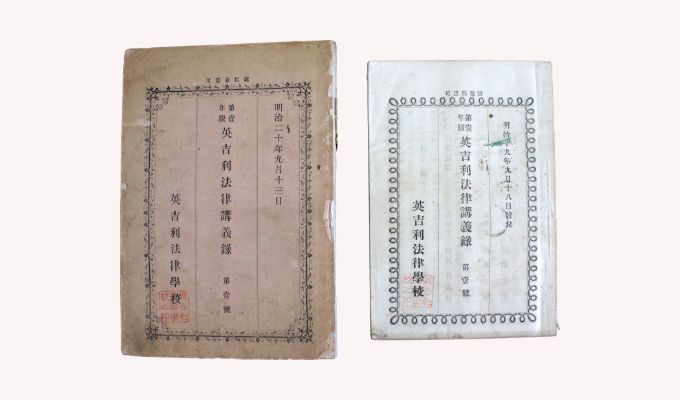 可認省信遞
明治二十年九月十三日
第壹年級 英吉利法律講義錄 第壹號
英吉利法律學校
可認局驛
明治十九年九月十八日發兌
第壹年級 英吉利法律講義錄 第壹號
英吉利法律學校